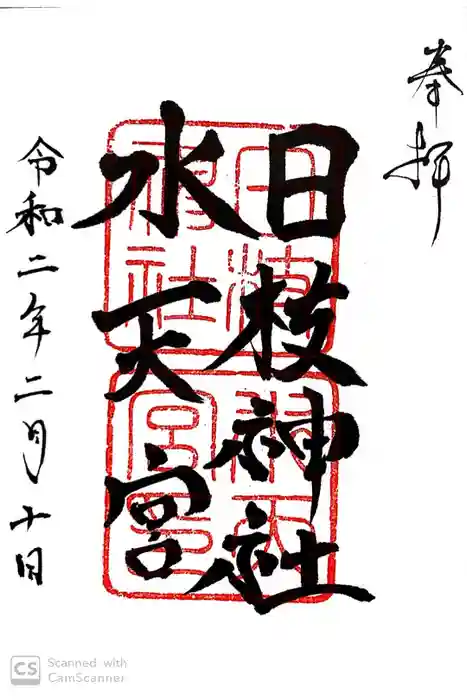 奉拝
日枝神社
水天宮
令和二年二月十日
日枝
神社
水天
宮印
CS Scanned with
CamScanner